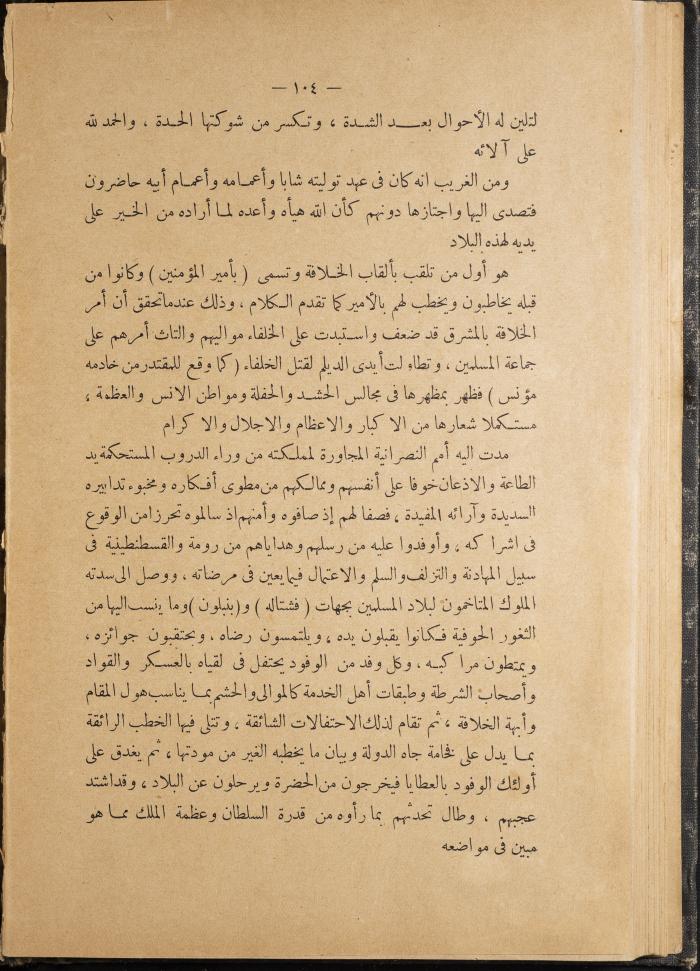 — ١٠٤ —
لتلين له الأحوال بعد الشدة ، وتكسر من شوكتها الحدة ، والحمد لله
على آلائه
ومن الغريب انه كان فى عهد توليته شابا وأعمامه وأعمام أبيه حاضرون
فتصدى اليها واجتازها دونهم كأن الله هيأه وأعده لما أراده من الخير على
يديه لهذه البلاد
هو أول من تلقب بألقاب الخلافة وتسمى ( بأمير المؤمنين ) وكانوا من
قبله يخاطبون ويخطب لهم بالأمير كما تقدم الكلام ، وذلك عندما تحقق أن أمر
الخلافة بالمشرق قد ضعف واستبدت على الخلفاء مواليهم والتاث أمرهم على
جماعة المسلمين ، وتطاولت أيدى الديلم لقتل الخلفاء ( كما وقع للمقتدر من خادمه
مؤنس ) فظهر بمظهرها فى مجالس الحشد والحفلة ومواطن الانس والعظمة ،
مستكملا شعارها من الاكبار والاعظام والاجلال والاكرام
مدت اليه أمم النصرانية المجاورة لمملكته من وراء الدروب المستحكمة يد
الطاعة والاذعان خوفا على أنفسهم وممالكهم من مطوى أفكاره ومخبوء تدابيره
السديدة وآرائه المفيدة ، فصفا لهم إذ صافوه وأمنهم اذ سالموه تحرزا من الوقوع
فى اشراكه ، وأوفدوا عليه من رسلهم وهداياهم من رومة والقسطنطينية فى
سبيل المهادنة والتزلف والسلم والاعتمال فيما يعين فى مرضاته ، ووصل الى سدته
الملوك المتاخمون لبلاد المسلمين بجهات ( فشتاله ) و( بنبلون ) وما ينسب اليها من
الثغور الحوفية فكانوا يقبلون يده ، ويلتمسون رضاه ، ويحتقبون جوائزه ،
ويمتطون مراكبه ، وكل وفد من الوفود يحتفل فى لقياه بالعسكر والقواد
وأصحاب الشرطة وطبقات أهل الخدمة كالموالى والحشم بما يناسب هول المقام
وأبهة الخلافة ، ثم تقام لذلك الاحتفالات الشائقة ، وتتلى فيها الخطب الرائقة
بما يدل على فخامة جاه الدولة وبيان ما يخطبه الغير من مودتها ، ثم يغدق على
أولئك الوفود بالعطايا فيخرجون من الحضرة ويرحلون عن البلاد ، وقد اشتد
عجبهم ، وطال تحدثهم بما رأوه من قدرة السلطان وعظمة الملك مما هو
مبين فى مواضعه